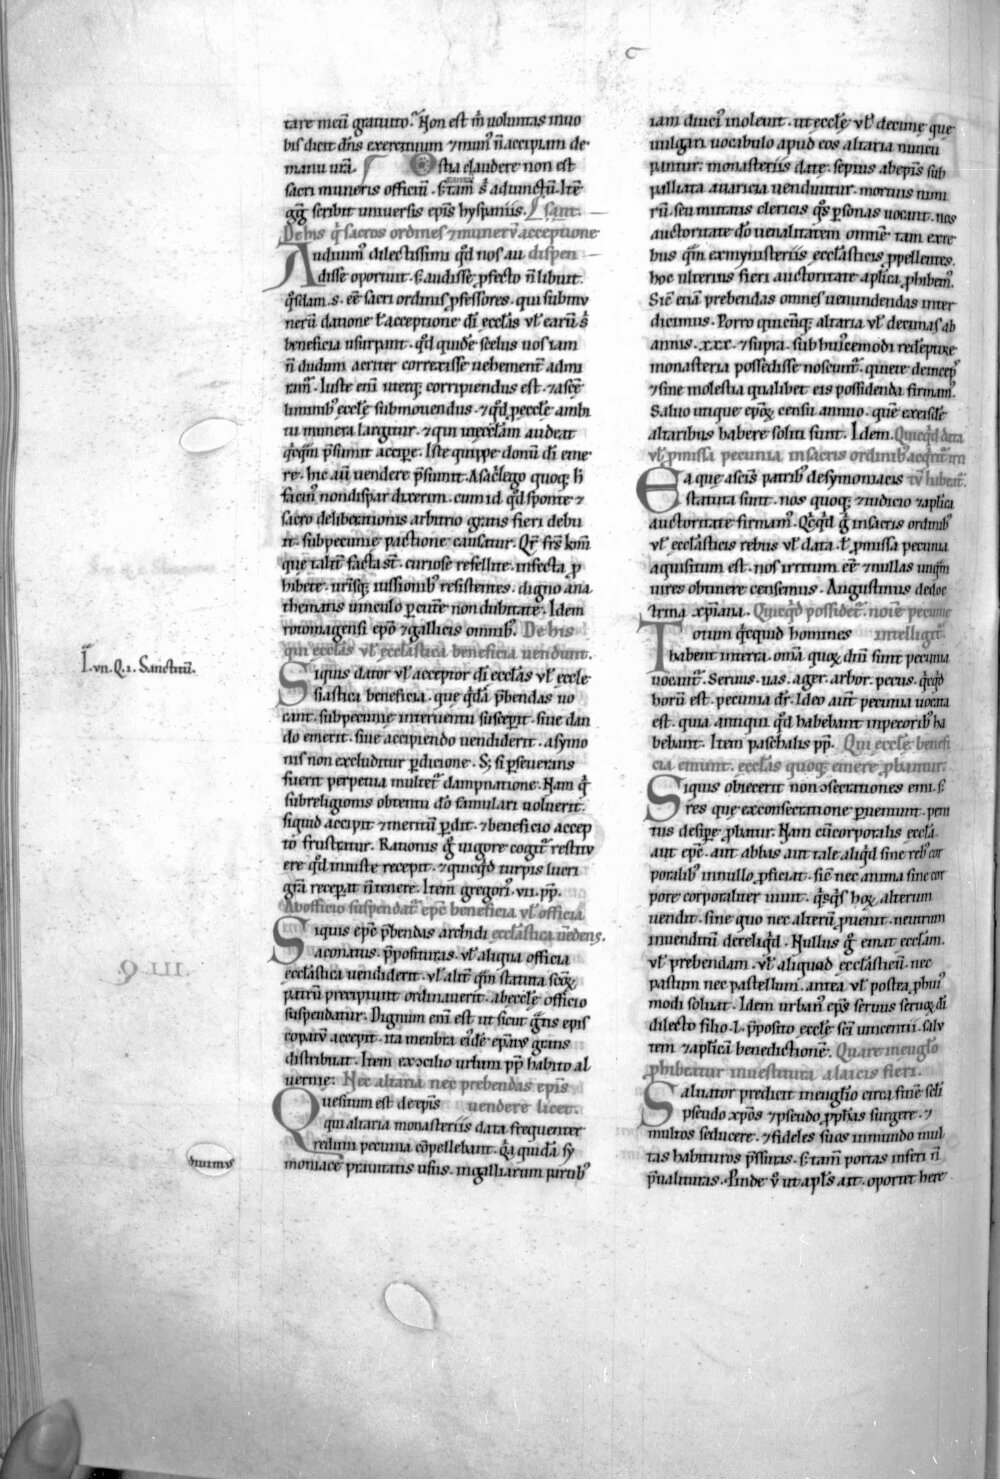 tare meū gratuito. Non est m̄ voluntas in uo
bis dicit dn̄s exercituum ⁊ mun̄ n̄ accipiam de
manu ur̄a. Ostia claudere non est
sacri muneris officiū.
gg̅ scribit universis ep̄is hyspaniis.
De his q̄ sacros ordines ⁊ munerū acceptione
Audiuim̄ dilectissimi qd̄ nos au dispen
disse oportuit. s; audisse ꝓfecto n̄ libuit.
q̄sdam .s. eē sacri ordinis ꝓfessores. qui sub mu
nerū datione ł acceptione di ecclās vł earū
beneficia usurpant. qd̄ quidē scelus uos iam
n̄ dudum acriter correxisse uehement̄ admi
ram̄. Iuste eni uterq; corripiendus est. ⁊ a sc̄e
liminib; eccłe submouendus. ⁊ qd̄ ꝑ eccłe ambi
tu munera largitur. ⁊ qui in eccłam audeat
q̄cq̄m p̄sumit accipe. Iste quippe donū di eme
re. hic aū uendere p̄sumit. A sac̄lego quoq; h̄
facin̄ non dispar dixerim. cum id qd̄ sponte ⁊
sacro deliberationis arbitrio gratis fieri debu
it. sub pecunie pactione causatur. Qr̄ frs km̄i
que talit̄ facta st̄. curiose refellite. infecta ꝓ
hibete. ur̄isq; iussionib; resistentes. digno ana
thematis uinculo ꝑcutere non dubitate. Idem
rotomagensi ep̄o ⁊ gallicis omnib;. De his
qui ecclās vł ecclāstica beneficia uendunt.
Siquis dator vł acceptor di ecclās vł eccle
siastica beneficia. que q̄dā p̄bendas uo
cant. sub pecunie interuentu susceꝑit. siue dan
do emerit. siue accipiendo vendiderit. a symo
nis non excluditur ꝑditione. S; si ꝑseuerans
fuerit perpetua multet̄ dampnatione. Nam q̄
sub religionis obtentu dō famulari voluerit.
siquid accipit ⁊ meritū ꝑdit. ⁊ beneficio accep
to frustratur. Rationis ḡ uigore cogit̄ restitu
ere qd̄ iniuste recepit. ⁊ quicq̄d turpis lucri
grā receꝑat n̄ tenere. Item gregori.vii. pp.
Ab officio suspendat̄ ep̄c beneficia vł officia
Siquis ep̄c p̄bendas archidi ecclāstica uēdens.
aconatus. p̄posituras. vł aliqua officia
ecclāstica vendiderit. vł alit̄ q̄m statuta scōꝝ
patrū precipiunt ordinauerit. ab eccłe officio
suspendatur. Dignum eni est ut sicut g̅tis epis
copatū accepit. ita menbra eidē ep̄at̄ gratis
distribuat. Item ex ↄcilio urbani pp habito al
uernie. Nec altaria nec prebendas ep̄is
Quesitum est de ep̄is uendere licet.
qui altaria monasteriis data frequenter
redimi pecunia cōpellebant. q̄a quidā sy
moniace prauitatis usus. in galliarum partib;
I. vii. Q. 1. Sanctim̄.
Q. III.
tuimus
iam diuci̅ inoleuit. ut eccłe vł decime que
uulgari uocabulo apud eos altaria nuncu
pantur. monasteriis date. sepius ab ep̄is sub
palliata auaricia uenduntur. mortuis nimi
rū seu mutatis clericis q̄s ꝑsonas uocant. nos
auctoritate do̅ uenalitatem omnē tam ex re
bus q̄m ex mynisteriis ecclāsticis ꝓpellentes.
hoc ulterius fieri auctoritate aplica ꝓhibem̄.
Sic̄ etiā prebendas omnes uenundendas inter
dicimus. Porro quicūq; altaria vł decimas ab
annis .xxx. ⁊ supra. sub hui̅cemodi redeptione
monasteria possedisse noscunt̄. quiete deincep̄
⁊ sine molestia qualibet eis possidenda firmam̄.
Saluo utique ep̄oꝝ censu annuo. quē ex eisdē
altaribus habere soliti sunt. Idem. Quicq̄d data
vł ꝓmissa pecunia in sacris ordinib; acq̄rit̄ irri
Ea que a sc̄is patrib; de symoniacis tū habeat̄.
statuta sunt. nos quoq; ⁊ iudicio ⁊ aplica
auctoritate firmam̄. Q̄cq̄d ḡ in sacris ordinib;
vł ecclāsticis rebus vł data. ł ꝓmissa pecunia
aquisitum est. nos irritum eē ⁊ nullas unq̄m
uires obtinere censemus. Augustinus de doc
trina xp̄iana. Quicq̄d possidet̄. noīe pecunie
Totum q̄cquid homines intelligit̄.
habent in terra. omīa quoꝝ dn̄i sunt pecunia
uocant̄. Seruus. uas. ager. arbor. pecus. q̄cq̄d
horū est. pecunia dr̄. Ideo aut̄ pecunia uocata
est. quia antiqui qd̄ habebant in pecorib; ha
bebant. Item paschalis pp. Qui eccłe benefi
cia emunt. ecclās quoq; emere ꝓbantur.
Siquis obiecerit non ↄsecrationes emi. s;
res que ex consecratione ꝓueniunt. peni
tus desiꝑe ꝓbatur. Nam cū corporalis ecclā.
aut ep̄c. aut abbas aut tale aliq̄d sine reb; cor
poralib; in nullo ꝓficiat. sic̄ nec anima sine cor
pore corporaliter uiuit. q̄sq̄s hoꝝ alterum
uendit. sine quo nec alterū ꝓuenit. neutrum
inuenditū dereliq̄d. Nullus ḡ emat eccłam.
vł prebendam. vł aliquod ecclāsticū. nec
pastum nec pastellum. antea vł postea ꝓ hui̅
modi soluat. Idem urban̄ ep̄s seruus seruoꝝ di
dilecto filio .l. p̄posito eccłe sc̄i uincentii. salu
tem ⁊ aplicā benedictionē. Quare in eugło
ꝓhibeatur inuestitura a laicis fieri.
Saluator predicit in eugłio circa finē scłi
pseudo xp̄os ⁊ pseudo ꝓphas surgere. ⁊
multos seducere. ⁊ fideles suos in mundo mul
tas habituros p̄ssuras. s; tam̄ portas inferi n̄
p̄ualituras. ꝓinde v̄ ut apłs ait. oportet here